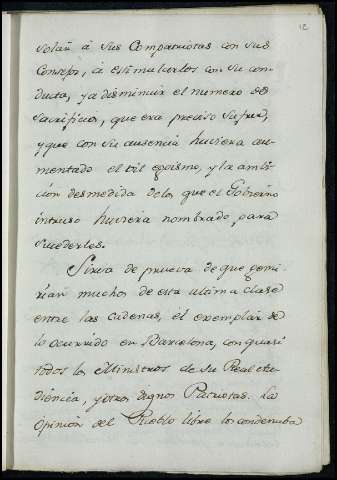 12
solar á sus Compatriotas con sus
Consejos, á estimularlos con su con
ducta, y a disminuir el numero de
Sacrificios, que era preciso sufrir,
y que con su ausencia huviera au-
mentado el vil egoismo, y la ambi-
cion desmedida de los que el Gobierno
intruso huviera nombrado para
sucederles.
Sirva de prueva de que gemi-
rian muchos de esta ultima clase
entre las cadenas, el exemplar de
lo ocurrido en Barcelona, con quasi
todos los Ministros de su Real Au-
diencia, y otros dignos Patriotas. La
opinion del Pueblo libre los condenaba